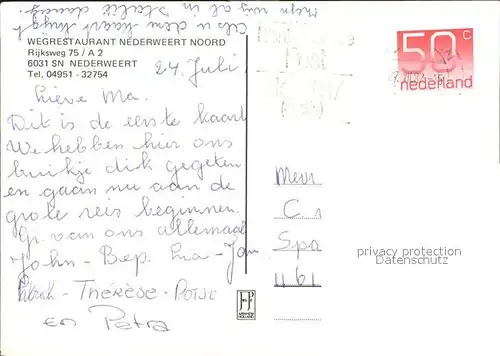 Als u deze kaart krijgt
zijn wij al in Italië
WEGRESTAURANT NEDERWEERT NOORD
Rijksweg 75 / A 2
6031 SN NEDERWEERT
Tel. 04951 - 32754
24 Juli
Lieve Ma.
Dit is de eerste kaart
We hebben hier ons
buikje dik gegeten
en gaan nu aan de
grote reis beginnen.
Gr. van ons allemaal
John - Bep. Ria - Jan
Henk - Thérèse - Potje
en Petra
50 c
nederland
Mevr
C. s
Spo
4461
privacy protection
Datenschutz
ARNHEM
HOLLAND